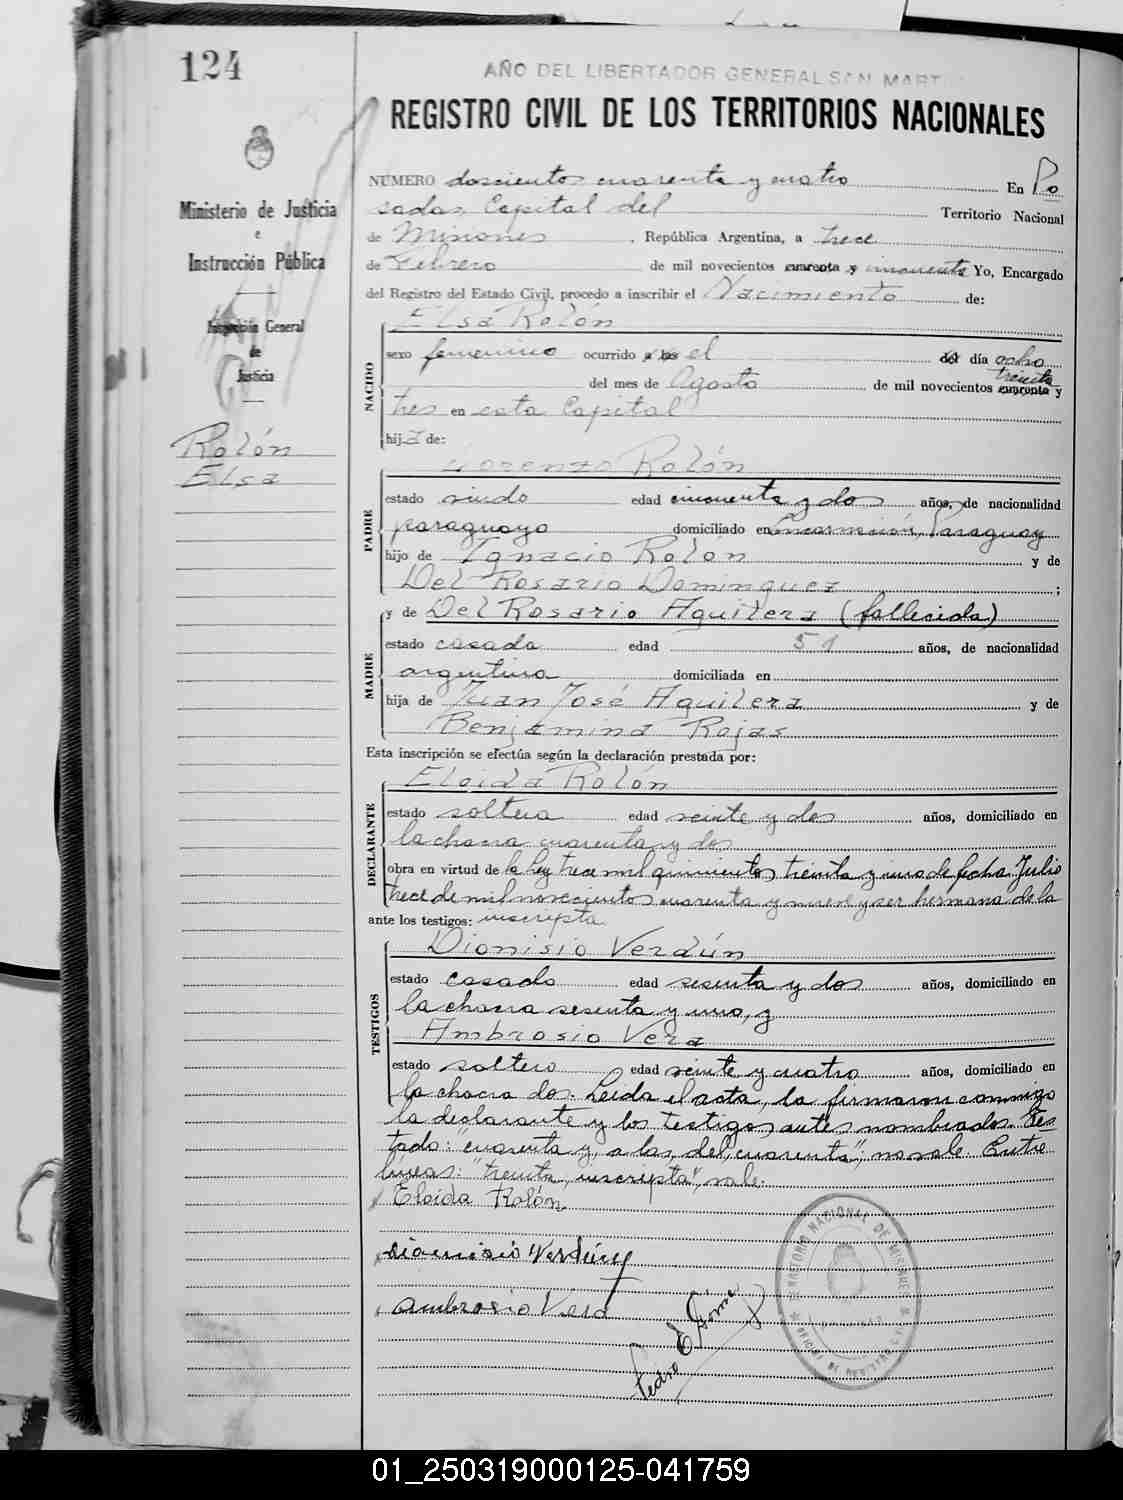 124
AÑO DEL LIBERTADOR GENERAL SAN MART
REGISTRO CIVIL DE LOS TERRITORIOS NACIONALES
Ministerio de Justicia
e
Instrucción Pública
Inspección General
de
Justicia
Rolón
Elsa
NÚMERO doscientos cuarenta y cuatro En Po
sadas, Capital del Territorio Nacional
de Misiones, República Argentina, a trece
de Febrero de mil novecientos cuarenta y cincuenta Yo, Encargado
del Registro del Estado Civil, procedo a inscribir el Nacimiento de:
NACIDO
Elsa Rolón
sexo femenino ocurrido a las el del día ocho
treinta
del mes de Agosto de mil novecientos cuarenta y
tres en esta Capital
hija de:
PADRE
Lorenzo Rolón
estado viudo edad cincuenta y dos años, de nacionalidad
paraguayo domiciliado en Encarnación, Paraguay
hijo de Ignacio Rolón y de
Del Rosario Dominguez ;
MADRE
y de Del Rosario Aguilera (fallecida)
estado casada edad 51 años, de nacionalidad
argentina domiciliada en
hija de Juan José Aguilera y de
Benjamina Rojas
Esta inscripción se efectúa según la declaración prestada por:
DECLARANTE
Eloida Rolón
estado soltera edad veinte y dos años, domiciliado en
la chacra cuarenta y dos
obra en virtud de la ley trece mil quinientos treinta y uno de fecha Julio
trece de mil novecientos cuarenta y nueve y ser hermana de la
ante los testigos: inscripta
TESTIGOS
Dionisio Verdún
estado casado edad sesenta y dos años, domiciliado en
la chacra sesenta y uno, y
Ambrosio Vera
estado soltero edad veinte y cuatro años, domiciliado en
la chacra dos. Leida el acta, la firmaron conmigo
la declarante y los testigos antes nombrados. Tes=
tado: "cuarenta y, a las, del, cuarenta"; no vale. Entre
líneas: "treinta, inscripta", vale.
Eloida Rolón
Dionisio Verdún
Ambrosio Vera
Pedro E. Gómez
01_250319000125-041759